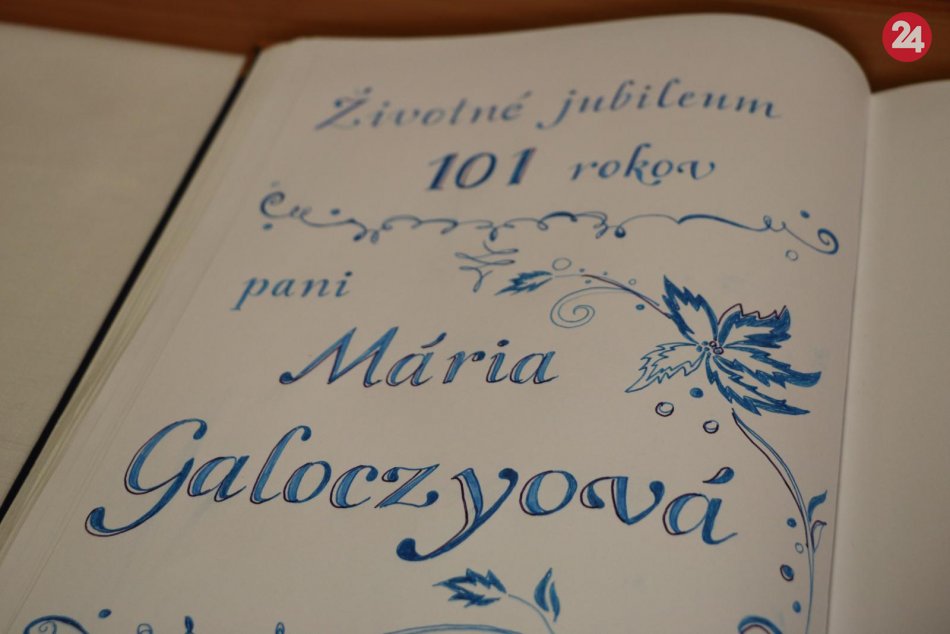 24
Životné jubileum
101 rokov
pani
Mária
Galoczyová